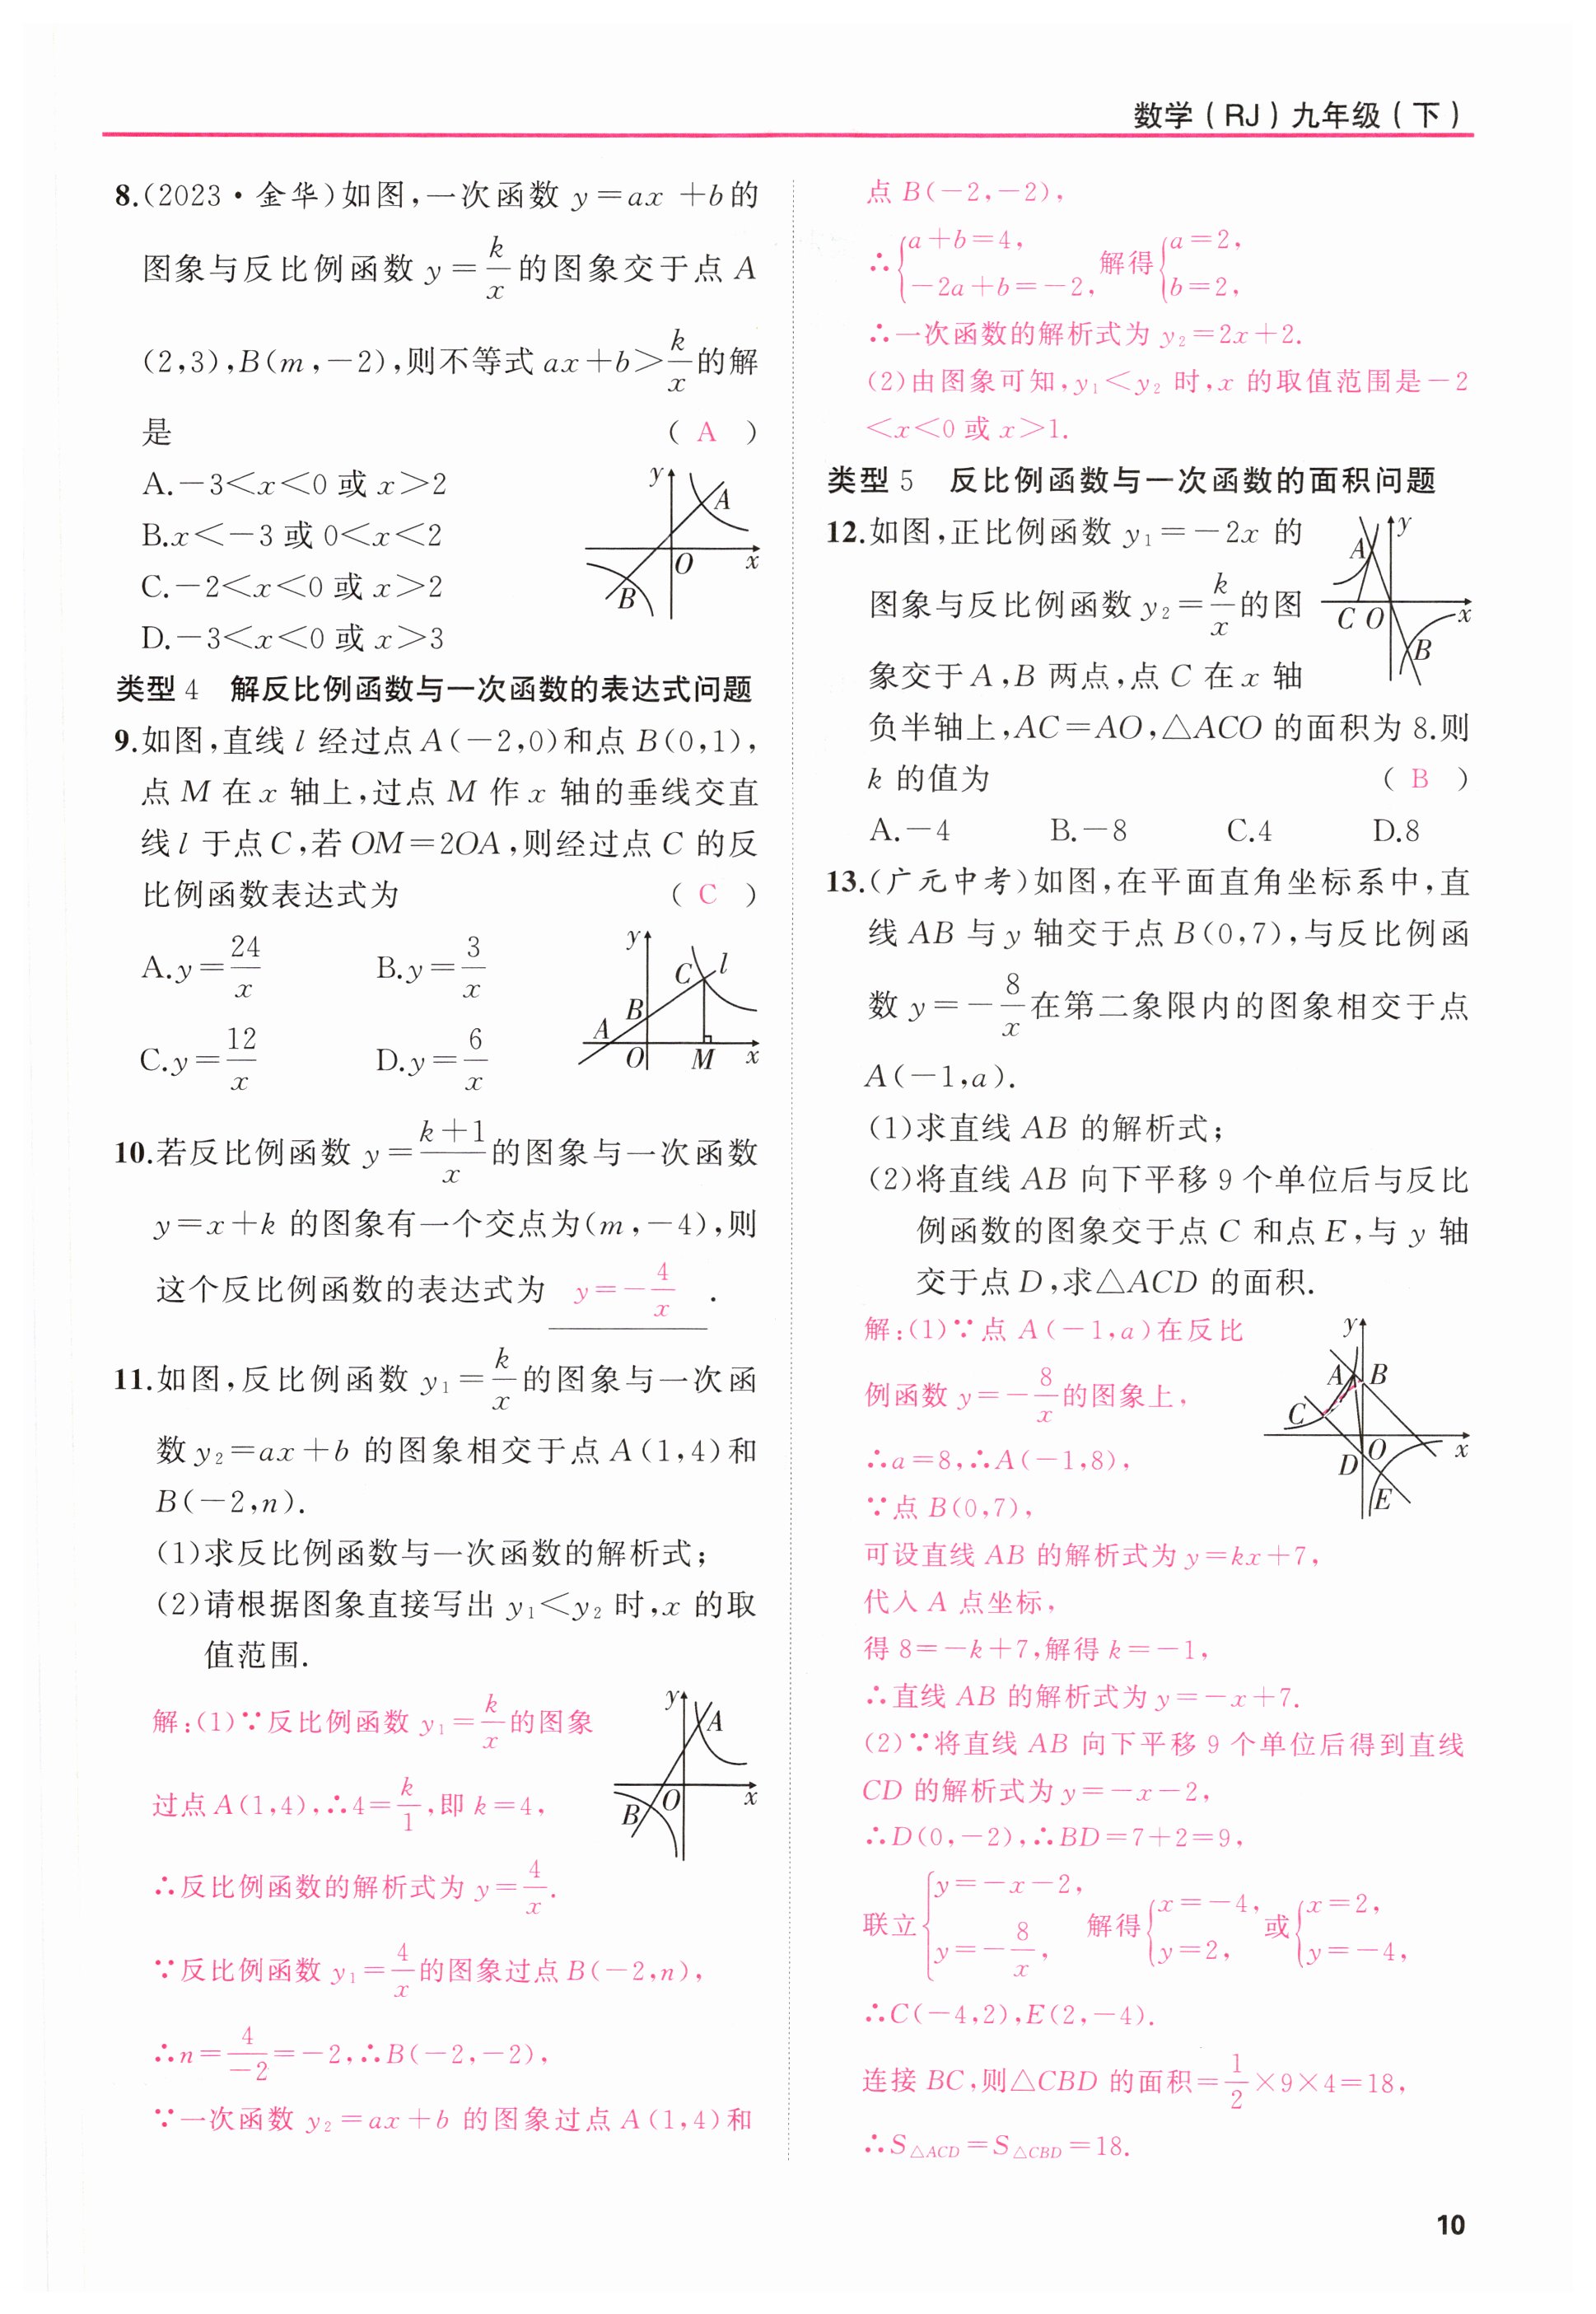 数学(RJ)九年级(下)
8.(2023·金华)如图,一次函数 y=ax+b的
图象与反比例函数 y=k/x的图象交于点 A
(2,3),B(m,-2),则不等式 ax+b>k/x的解
是 ( A )
A.-3<x<0 或 x>2
B.x<-3 或 0<x<2
C.-2<x<0 或 x>2
D.-3<x<0 或 x>3
y
A
O
x
B
类型 4 解反比例函数与一次函数的表达式问题
9.如图,直线 l 经过点 A(-2,0)和点 B(0,1),
点 M 在 x 轴上,过点 M 作 x 轴的垂线交直
线 l 于点 C,若 OM=2OA,则经过点 C 的反
比例函数表达式为 ( C )
A.y=24/x B.y=3/x
C.y=12/x D.y=6/x
y
C l
B
A
O M x
10.若反比例函数 y=(k+1)/x的图象与一次函数
y=x+k 的图象有一个交点为(m,-4),则
这个反比例函数的表达式为 y=-4/x .
11.如图,反比例函数 y₁=k/x的图象与一次函
数 y₂=ax+b 的图象相交于点 A(1,4)和
B(-2,n).
(1)求反比例函数与一次函数的解析式;
(2)请根据图象直接写出 y₁<y₂ 时,x 的取
值范围.
解:(1)∵反比例函数 y₁=k/x的图象
过点 A(1,4),∴4=k/1,即 k=4,
∴反比例函数的解析式为 y=4/x.
∵反比例函数 y₁=4/x的图象过点 B(-2,n),
∴n=4/-2=-2,∴B(-2,-2),
∵一次函数 y₂=ax+b 的图象过点 A(1,4)和
y
A
O
x
B
点 B(-2,-2),
∴{a+b=4, -2a+b=-2, 解得{a=2, b=2,
∴一次函数的解析式为 y₂=2x+2.
(2)由图象可知,y₁<y₂ 时,x 的取值范围是-2
<x<0 或 x>1.
类型 5 反比例函数与一次函数的面积问题
12.如图,正比例函数 y₁=-2x 的
图象与反比例函数 y₂=k/x的图
象交于 A,B 两点,点 C 在 x 轴
负半轴上,AC=AO,△ACO 的面积为 8.则
k 的值为 ( B )
A.-4 B.-8 C.4 D.8
y
A
C O x
B
13.(广元中考)如图,在平面直角坐标系中,直
线 AB 与 y 轴交于点 B(0,7),与反比例函
数 y=-8/x在第二象限内的图象相交于点
A(-1,a).
(1)求直线 AB 的解析式;
(2)将直线 AB 向下平移 9 个单位后与反比
例函数的图象交于点 C 和点 E,与 y 轴
交于点 D,求△ACD 的面积.
解:(1)∵点 A(-1,a)在反比
例函数 y=-8/x的图象上,
∴a=8,∴A(-1,8),
∵点 B(0,7),
可设直线 AB 的解析式为 y=kx+7,
代入 A 点坐标,
得 8=-k+7,解得 k=-1,
∴直线 AB 的解析式为 y=-x+7.
(2)∵将直线 AB 向下平移 9 个单位后得到直线
CD 的解析式为 y=-x-2,
∴D(0,-2),∴BD=7+2=9,
联立{y=-x-2, y=-8/x, 解得{x=-4, y=2, 或{x=2, y=-4,
∴C(-4,2),E(2,-4).
连接 BC,则△CBD 的面积=1/2×9×4=18,
∴S△ACD=S△CBD=18.
y
A B
C
O x
D
E
10